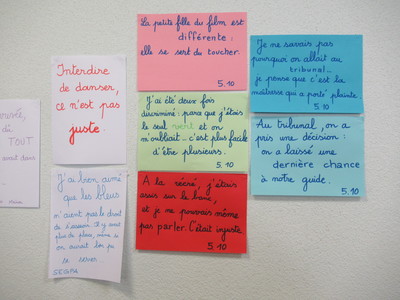 ouvée,
là
TOUT
avait dans
Interdire
de danser,
ce n'est pas
juste.
J'ai bien aimé
que les bleus
n'aient pas le droit
de s'asseoir. Il y avait
plus de place, même si
on aurait bien pu
se serrer.
SEGPA
La petite fille du film est
différente :
elle se sert du toucher.
5.10
J'ai été deux fois
discriminé : parce que j'étais
le seul vert et on
m'oubliait... c'est plus facile
d'être plusieurs.
5.10
A la récré, j'étais
assis sur le banc,
et je ne pouvais même
pas parler. C'était injuste.
5.10
Je ne savais pas
pourquoi on allait au
tribunal...
je pense que c'est la
maîtresse qui a porté plainte.
5.10
Au tribunal, on a
pris une décision :
on a laissé une
dernière chance
à notre guide.
5.10